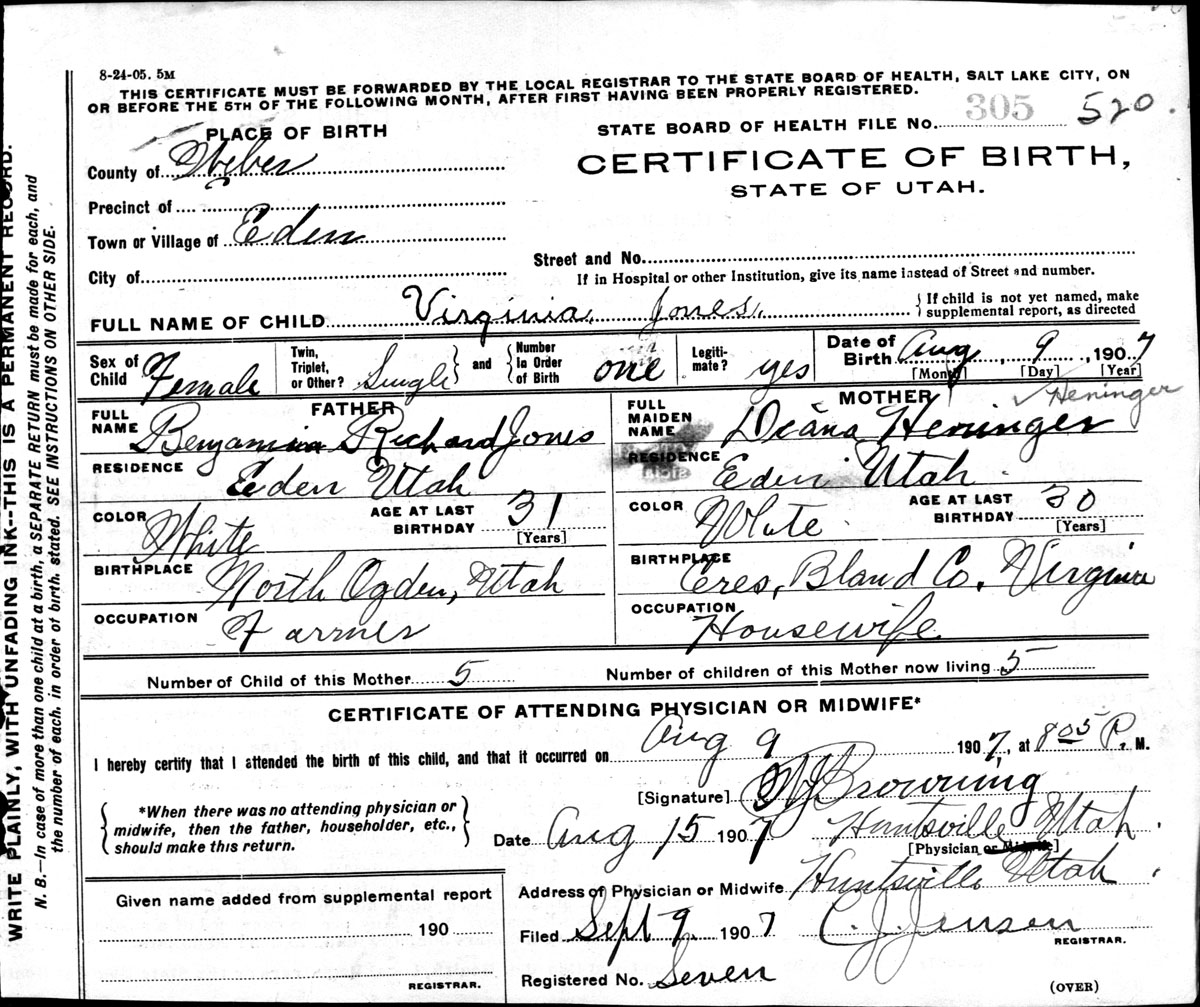 8-24-05. 5M
THIS CERTIFICATE MUST BE FORWARDED BY THE LOCAL REGISTRAR TO THE STATE BOARD OF HEALTH, SALT LAKE CITY, ON
OR BEFORE THE 5TH OF THE FOLLOWING MONTH, AFTER FIRST HAVING BEEN PROPERLY REGISTERED.
STATE BOARD OF HEALTH FILE No. 305 520.
CERTIFICATE OF BIRTH,
STATE OF UTAH.
PLACE OF BIRTH
County of Weber
Precinct of
Town or Village of Eden
City of
Street and No.
If in Hospital or other Institution, give its name instead of Street and number.
FULL NAME OF CHILD Virginia Jones.
If child is not yet named, make
supplemental report, as directed
Sex of Child Female
Twin, Triplet, or Other? Single
and
Number In Order of Birth one
Legiti-mate? yes
Date of Birth Aug 9, 1907
[Month] [Day] [Year]
FATHER
FULL NAME Benjamin Richard Jones
RESIDENCE Eden Utah
COLOR White
AGE AT LAST BIRTHDAY 31
[Years]
BIRTHPLACE North Ogden, Utah
OCCUPATION Farmer
MOTHER
Heninger
FULL MAIDEN NAME Diana Heninger
RESIDENCE Eden Utah
COLOR White
AGE AT LAST BIRTHDAY 30
[Years]
BIRTHPLACE Ceres, Bland Co. Virginia
OCCUPATION Housewife
Number of Child of this Mother 5
Number of children of this Mother now living 5
CERTIFICATE OF ATTENDING PHYSICIAN OR MIDWIFE*
I hereby certify that I attended the birth of this child, and that it occurred on Aug 9 1907, at 8 05 P. M.
*When there was no attending physician or
midwife, then the father, householder, etc.,
should make this return.
[Signature] Browning
Date Aug 15 1907 Huntsville Utah.
[Physician or Midwife]
Address of Physician or Midwife Huntsville Utah.
Filed Sept 9, 1907 C. J. Jensen
REGISTRAR.
Registered No. Seven
(OVER)
Given name added from supplemental report
190
REGISTRAR.
WRITE PLAINLY, WITH UNFADING INK--THIS IS A PERMANENT RECORD.
N. B.—In case of more than one child at a birth, a SEPARATE RETURN must be made for each, and
the number of each, in order of birth, stated. SEE INSTRUCTIONS ON OTHER SIDE.